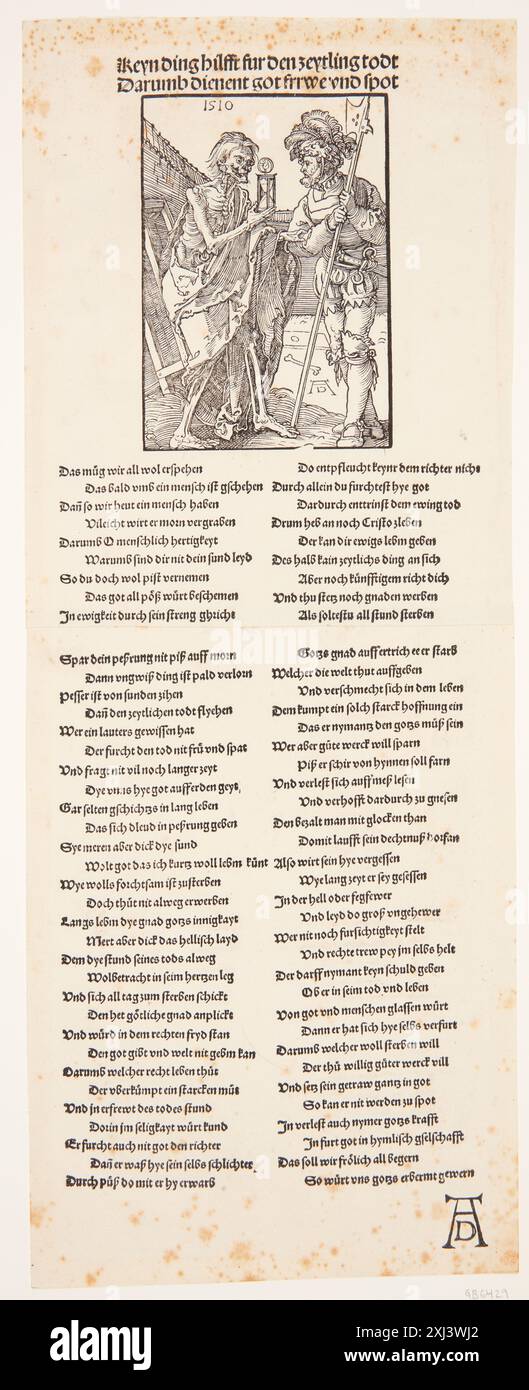 Keyn ding hilfft fur den zeytling todt
Darumb dienent got frrwe vnd spot
1510
AD
Das müg wir all wol erspehen
Das bald vmb ein mensch ist gschehen
Dañ so wir heut ein mensch haben
Vileicht wirt er morn vergraben
Darumb O menschlich hertigkeyt
Warumb sind dir nit dein sund leyd
So du doch wol pist vernemen
Das got all pöß würt beschemen
In ewigkeit durch sein streng ghricht
Spar dein peßrung nit piß auff morn
Dann vngwiß ding ist pald verlorn
Pesser ist von sunden zihen
Dañ den zeytlichen todt flyehen
Wer ein lauters gewissen hat
Der furcht den tod nit frü vnd spat
Vnd fragt nit vil noch langer zeyt
Dye vnns hye got aufferden geyt
Gar selten gschichtzs in lang leben
Das sich dleud in peßrung geben
Sye meren aber dick dye sund
Wolt got das ich kurtz woll lebm künt
Wye wolls forchtsam ist zusterben
Doch thüt nit alweg erwerben
Langs lebm dye gnad gotzs innigkayt
Mert aber dick das hellisch layd
Dem dye stund seines tods alweg
Wolbetracht in seim hertzen leg
Vnd sich all tag zum sterben schickt
Den het götliche gnad anplickt
Vnd würd in dem rechten fryd stan
Den got gibt vnd welt nit gebm kan
Darumb welcher recht leben thüt
Der vberkümpt ein starcken müt
Vnd jn erfrewt des todes stund
Dorin jm seligkayt würt kund
Er furcht auch nit got den richter
Dañ er waß hye sein selbs schlichter
Durch püß do mit er hy erwarb
Do entpfleucht keynr dem richter nicht
Durch allein du furchtest hye got
Dardurch enttrinst dem ewing tod
Drum heb an noch Cristo zleben
Der kan dir ewigs lebm geben
Des halb kain zeytlichs ding an sich
Aber noch künfftigem richt dich
Vnd thu stetz noch gnaden werben
Als soltestu all stund sterben
Gotzs gnad auffertrich ee er starb
Welcher die welt thut auffgeben
Vnd verschmecht sich in dem leben
Dem kumpt ein solch starck hoffnung ein
Das er nymantz den gotzs müß sein
Wer aber güte werck will sparn
Piß er schir von hynnen soll farn
Vnd verlest sich auff meß lesen
Vnd verhofft dardurch zu gnesen
Den bezalt man mit glocken than
Domit laufft sein dechtnuß dorfan
Also wirt sein hye vergessen
Wye lang zeyt er sey gesessen
In der hell oder fegfewer
Vnd leyd do groß vngehewer
Wer nit noch fursichtigkeyt stelt
Vnd rechte trew pey jm selbs helt
Der darff nymant keyn schuld geben
Ob er in seim tod vnd leben
Von got vnd menschen glassen würt
Dann er hat sich hye selbs verfurt
Darumb welcher woll sterben will
Der thü willig güter werck vill
Vnd setz sein getraw gantz in got
So kan er nit werden zu spot
In verlest auch nymer gotzs krafft
In furt got in hymlisch gselschafft
Das soll wir frölich all begern
So würt vns gotzs erbermt gewern
AD
alamy
Image ID: 2XJ3WJ2
www.alamy.com